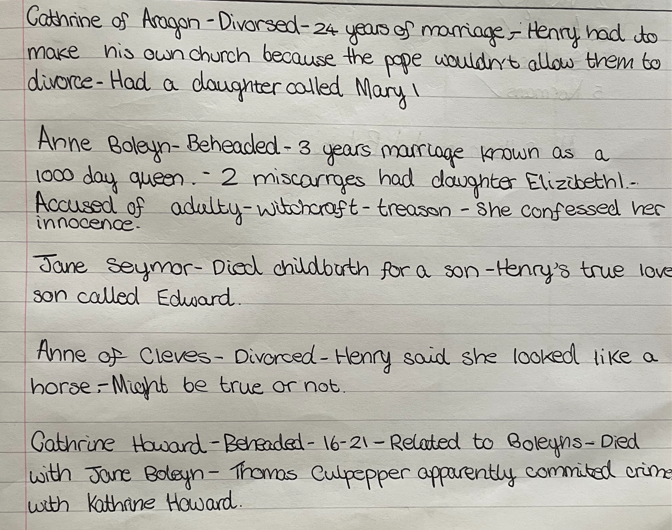 Cathrine of Aragon - Divorsed - 24 years of marriage - Henry had to
make his own church because the pope wouldn't allow them to
divorce - Had a daughter called Mary 1
Anne Boleyn - Beheaded - 3 years marriage known as a
1000 day queen. - 2 miscarrges had daughter Elizibeth 1. -
Accused of adulty - witchcraft - treason - she confessed her
innocence.
Jane Seymor - Died childbirth for a son - Henry's true love
son called Edward.
Anne of Cleves - Divorced - Henry said she looked like a
horse - Might be true or not.
Cathrine Howard - Beheaded - 16-21 - Related to Boleyns - Died
with Jane Boleyn - Thomas Culpepper apparently commited crime
with Kathrine Howard.